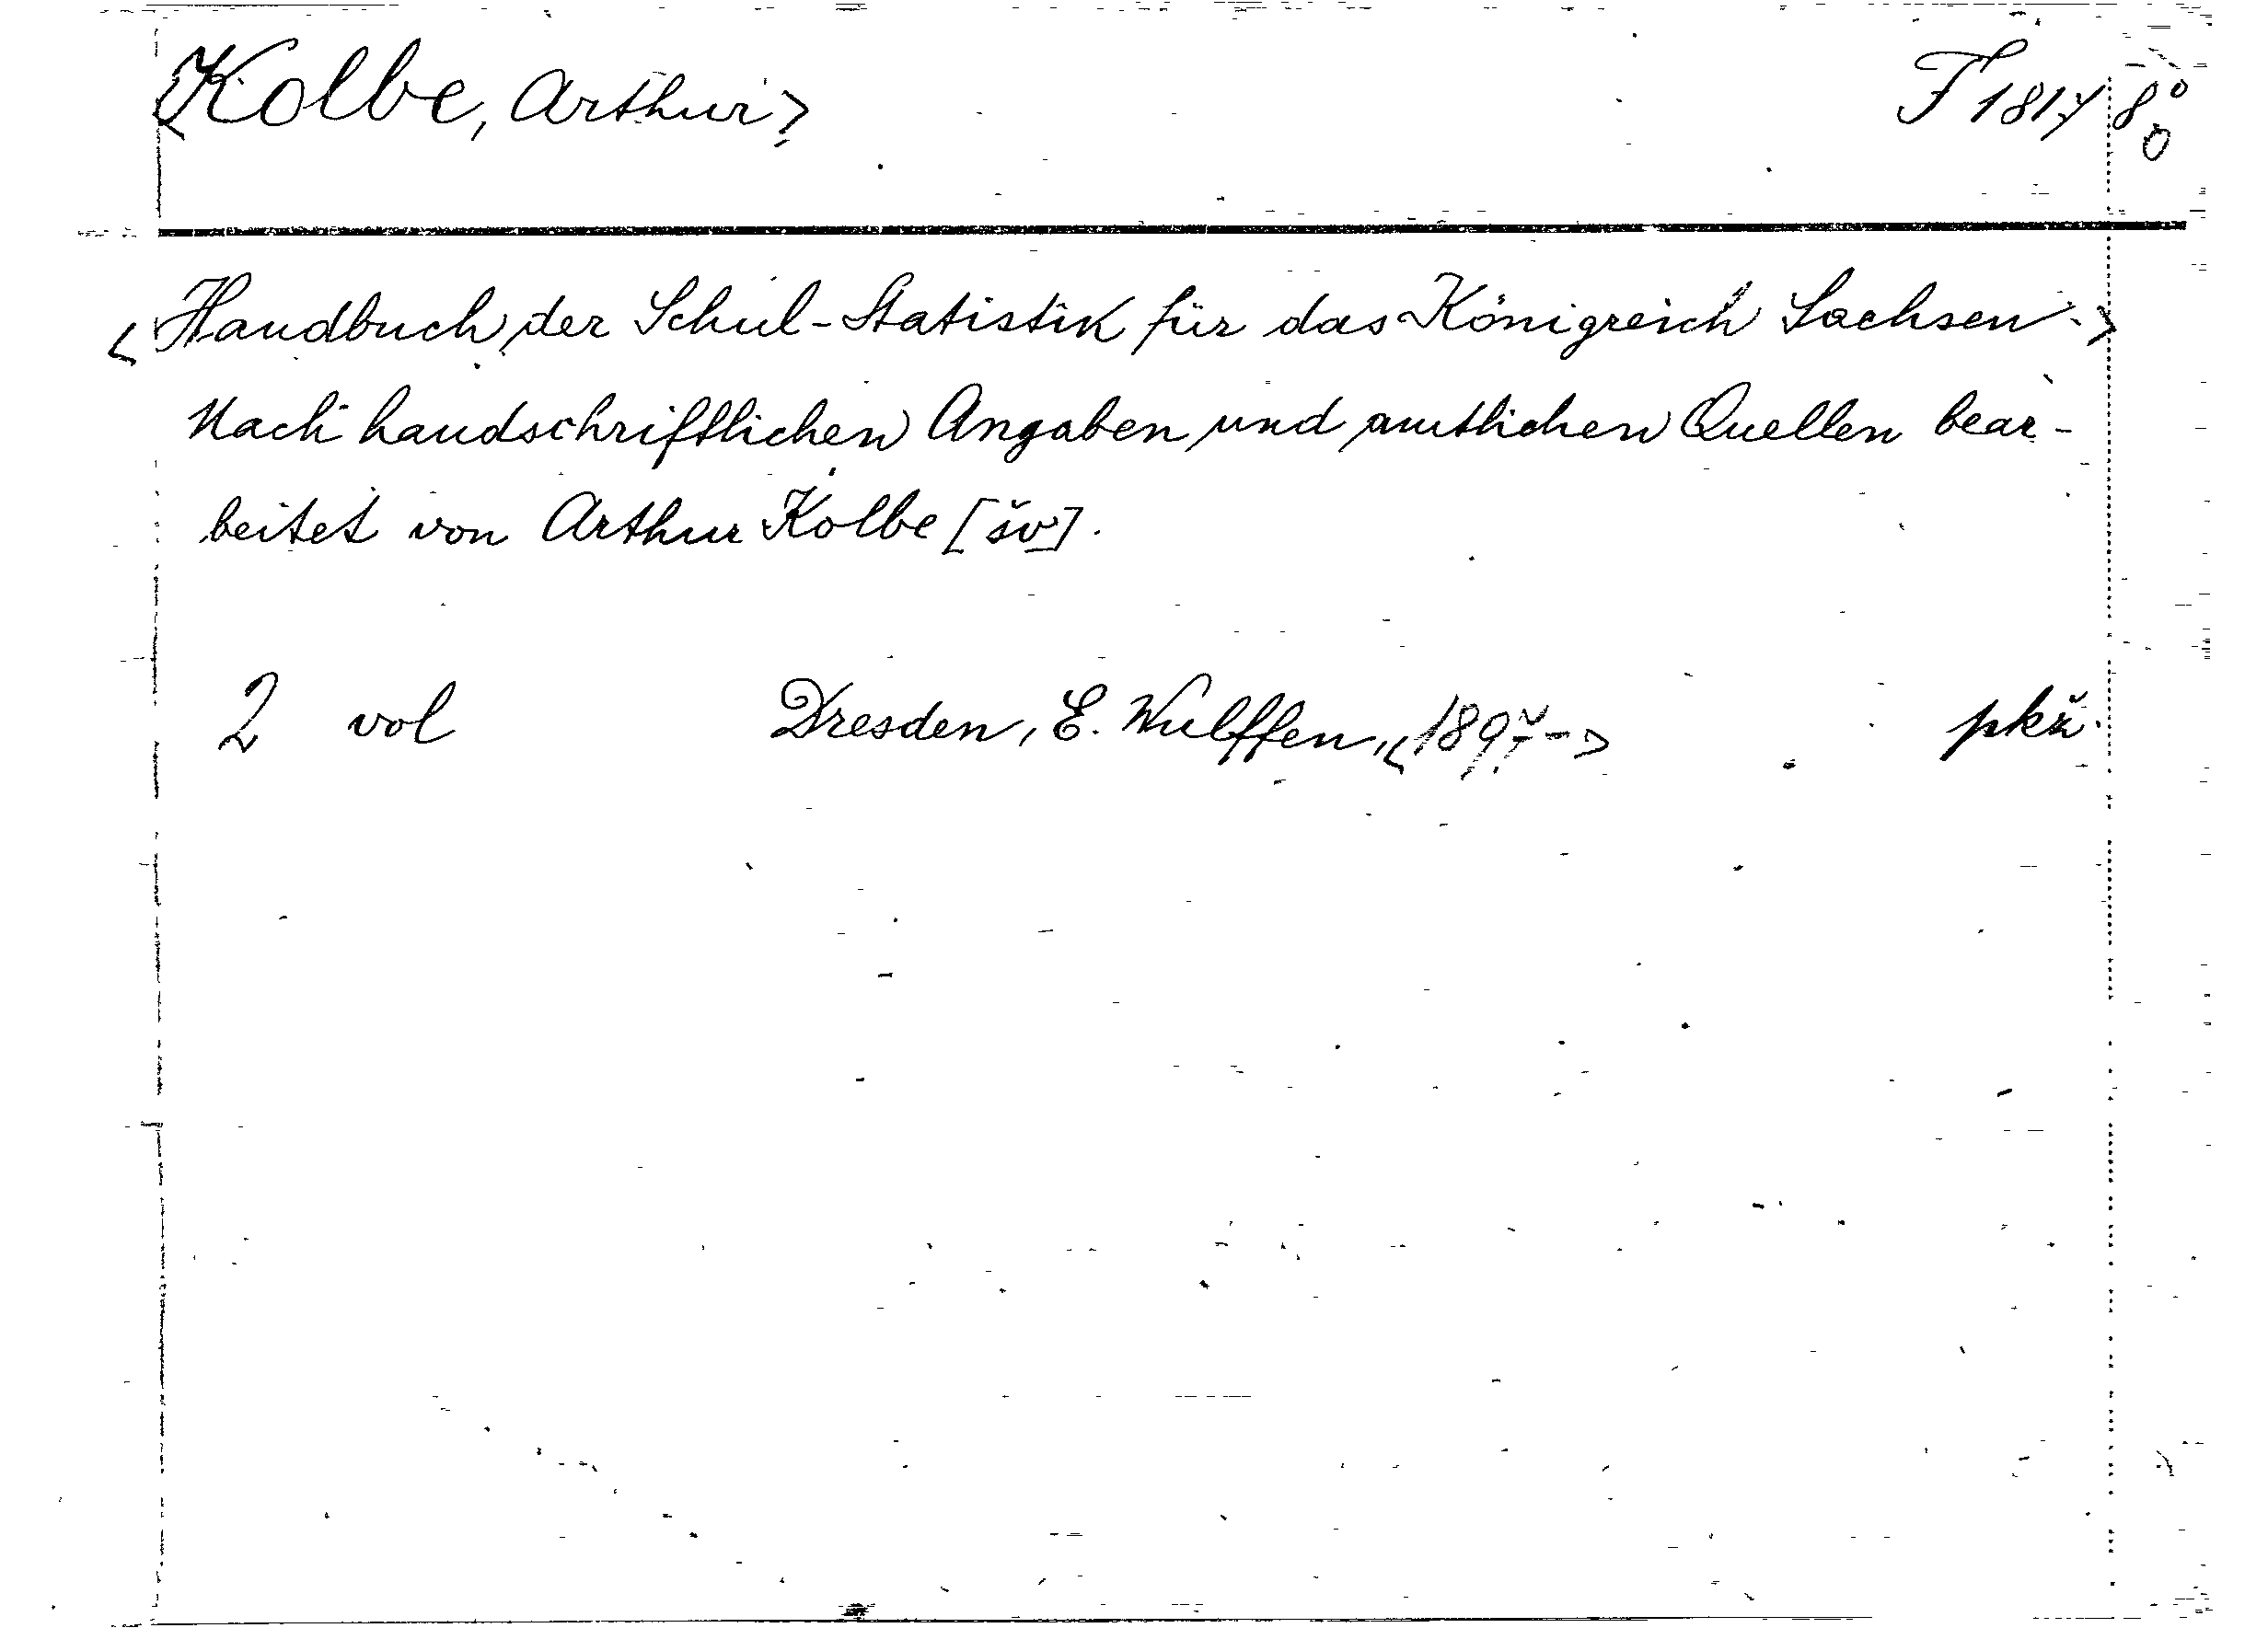 <Kolbe, Arthur> F 1817 8°
0
<Handbuch der Schul-Statistik für das Königreich Sachsen.>
Nach handschriftlichen Angaben und amtlichen Quellen bear-
beitet von Arthur Kolbe [šv].
2 vol Dresden, E. Wulffen, <1897-> pkž.